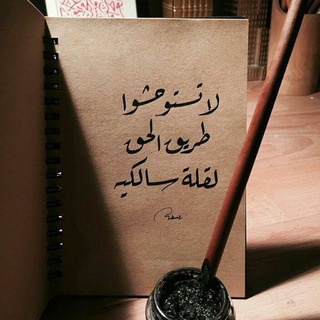 لا تستوحشوا
طريق الحق
لقلة سالكيه